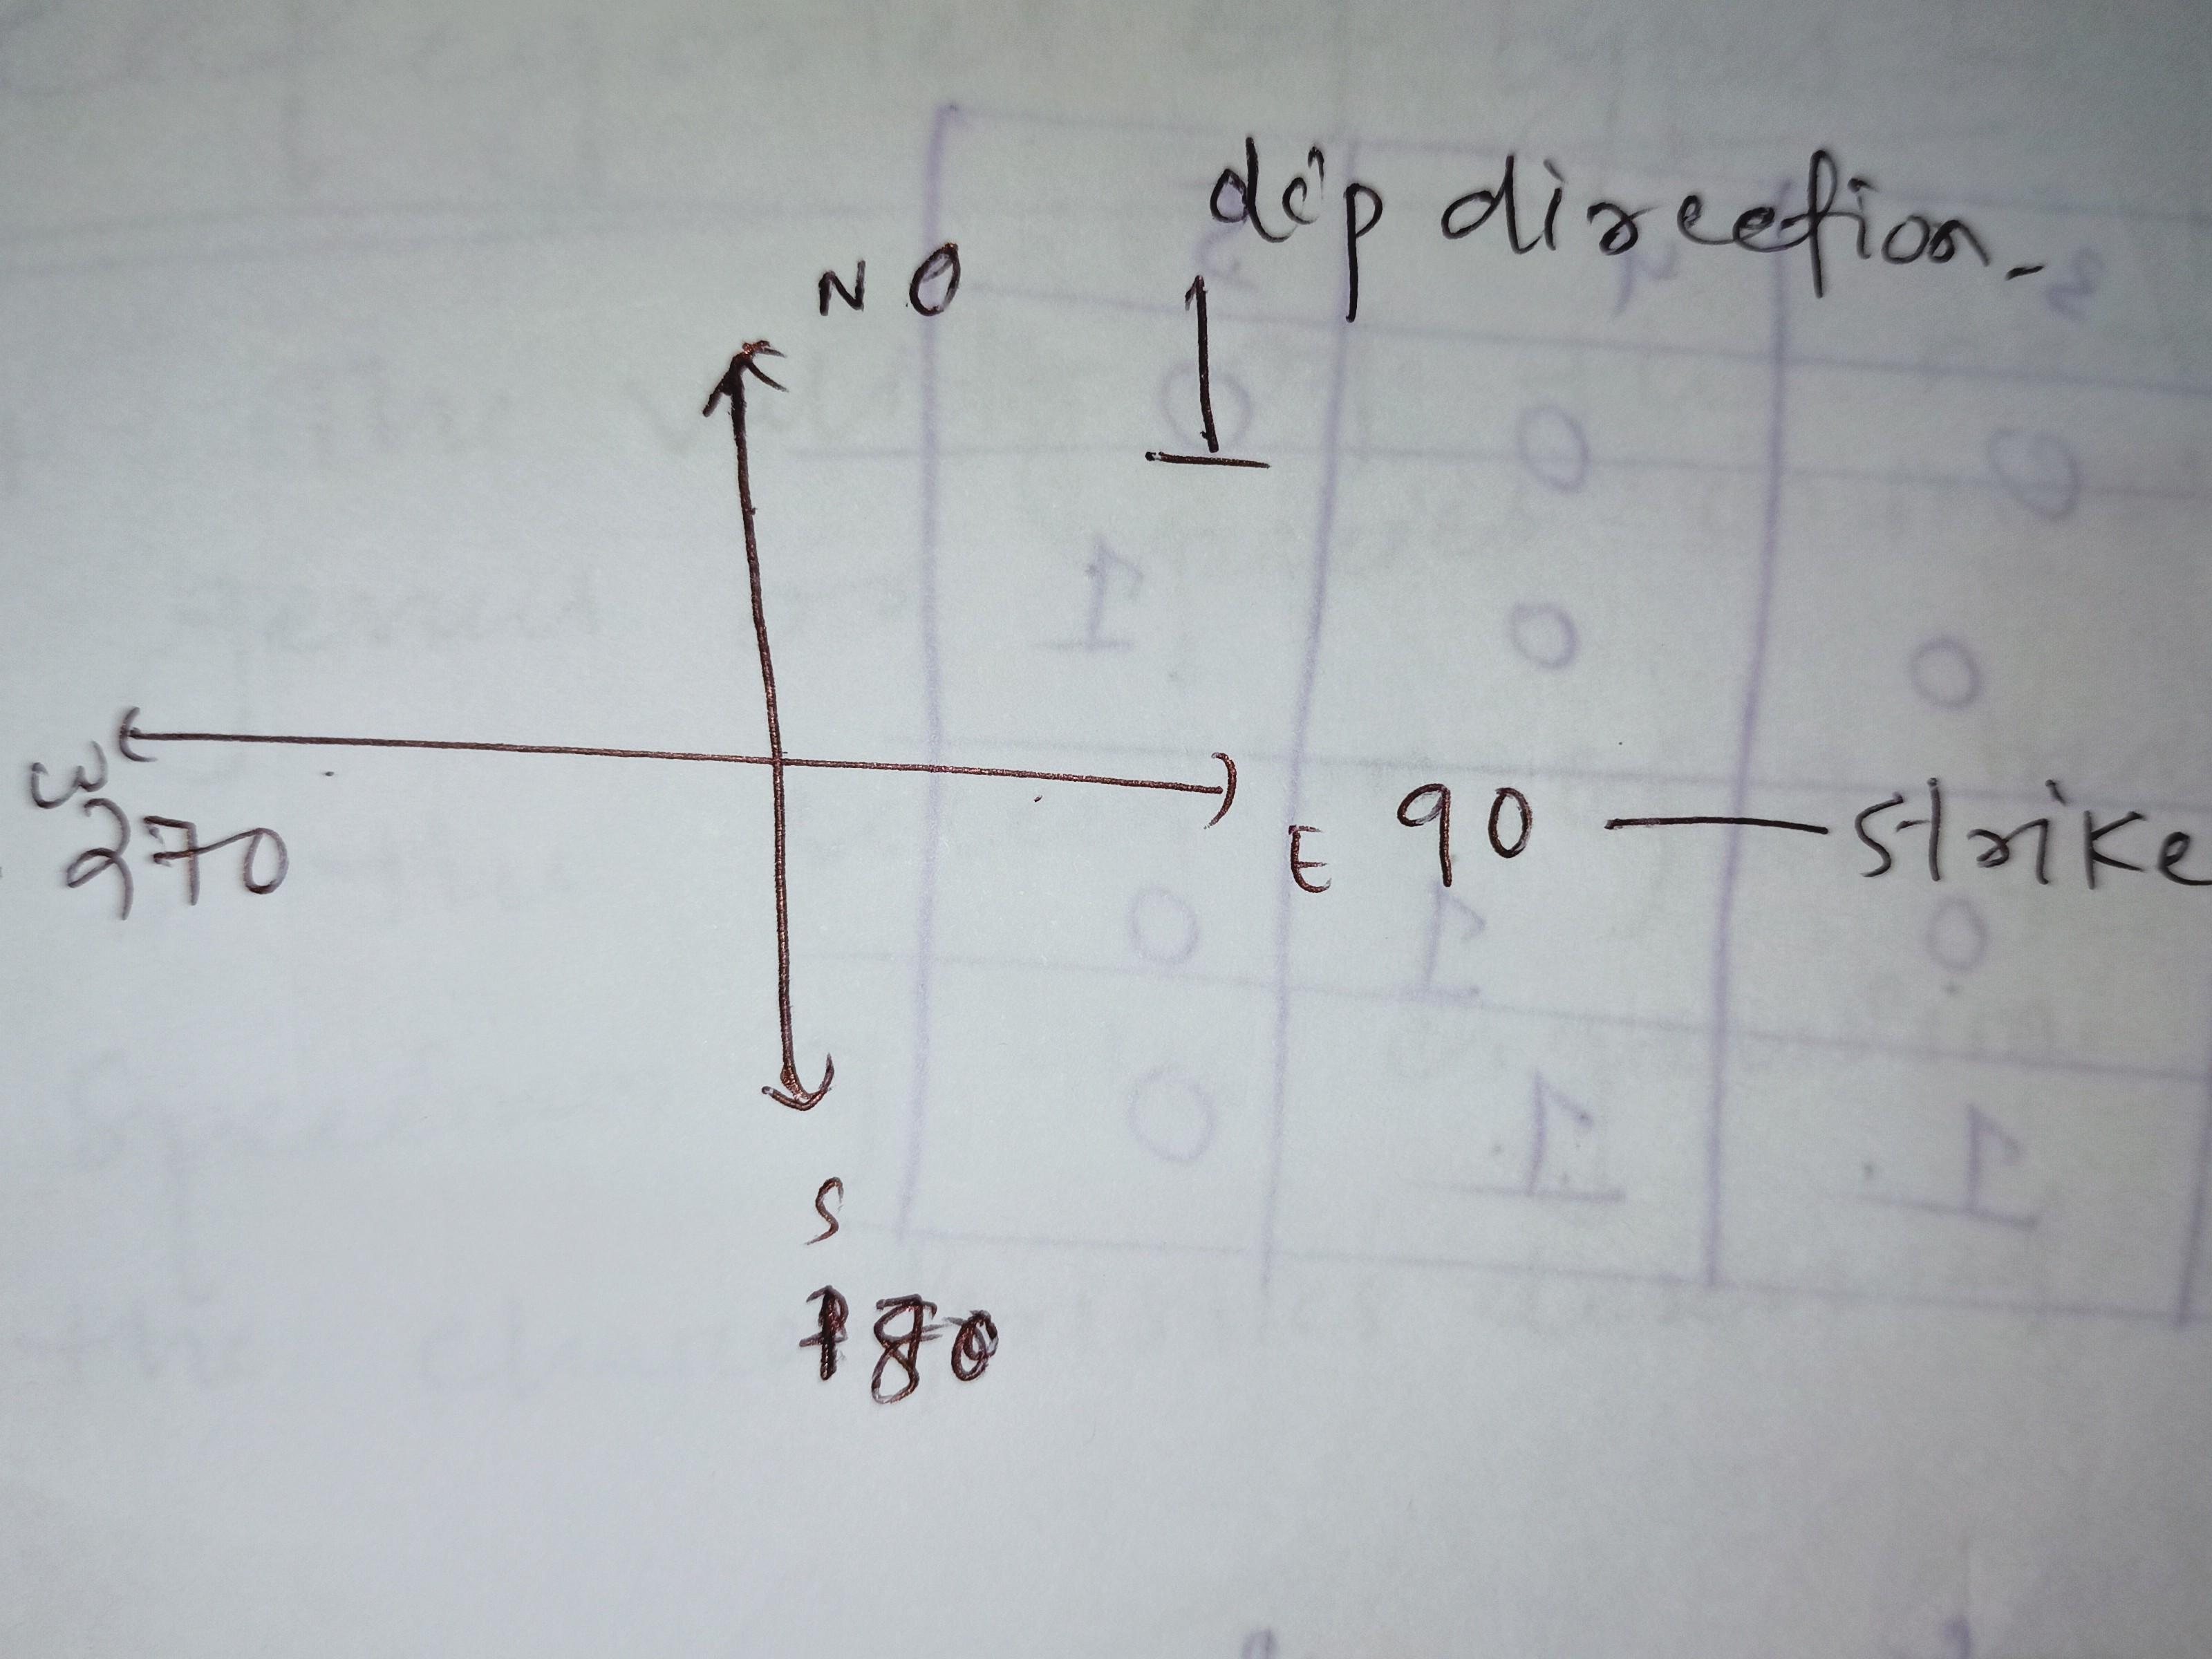 dip direction.
N 0
W
270
E 90 — strike
S
180